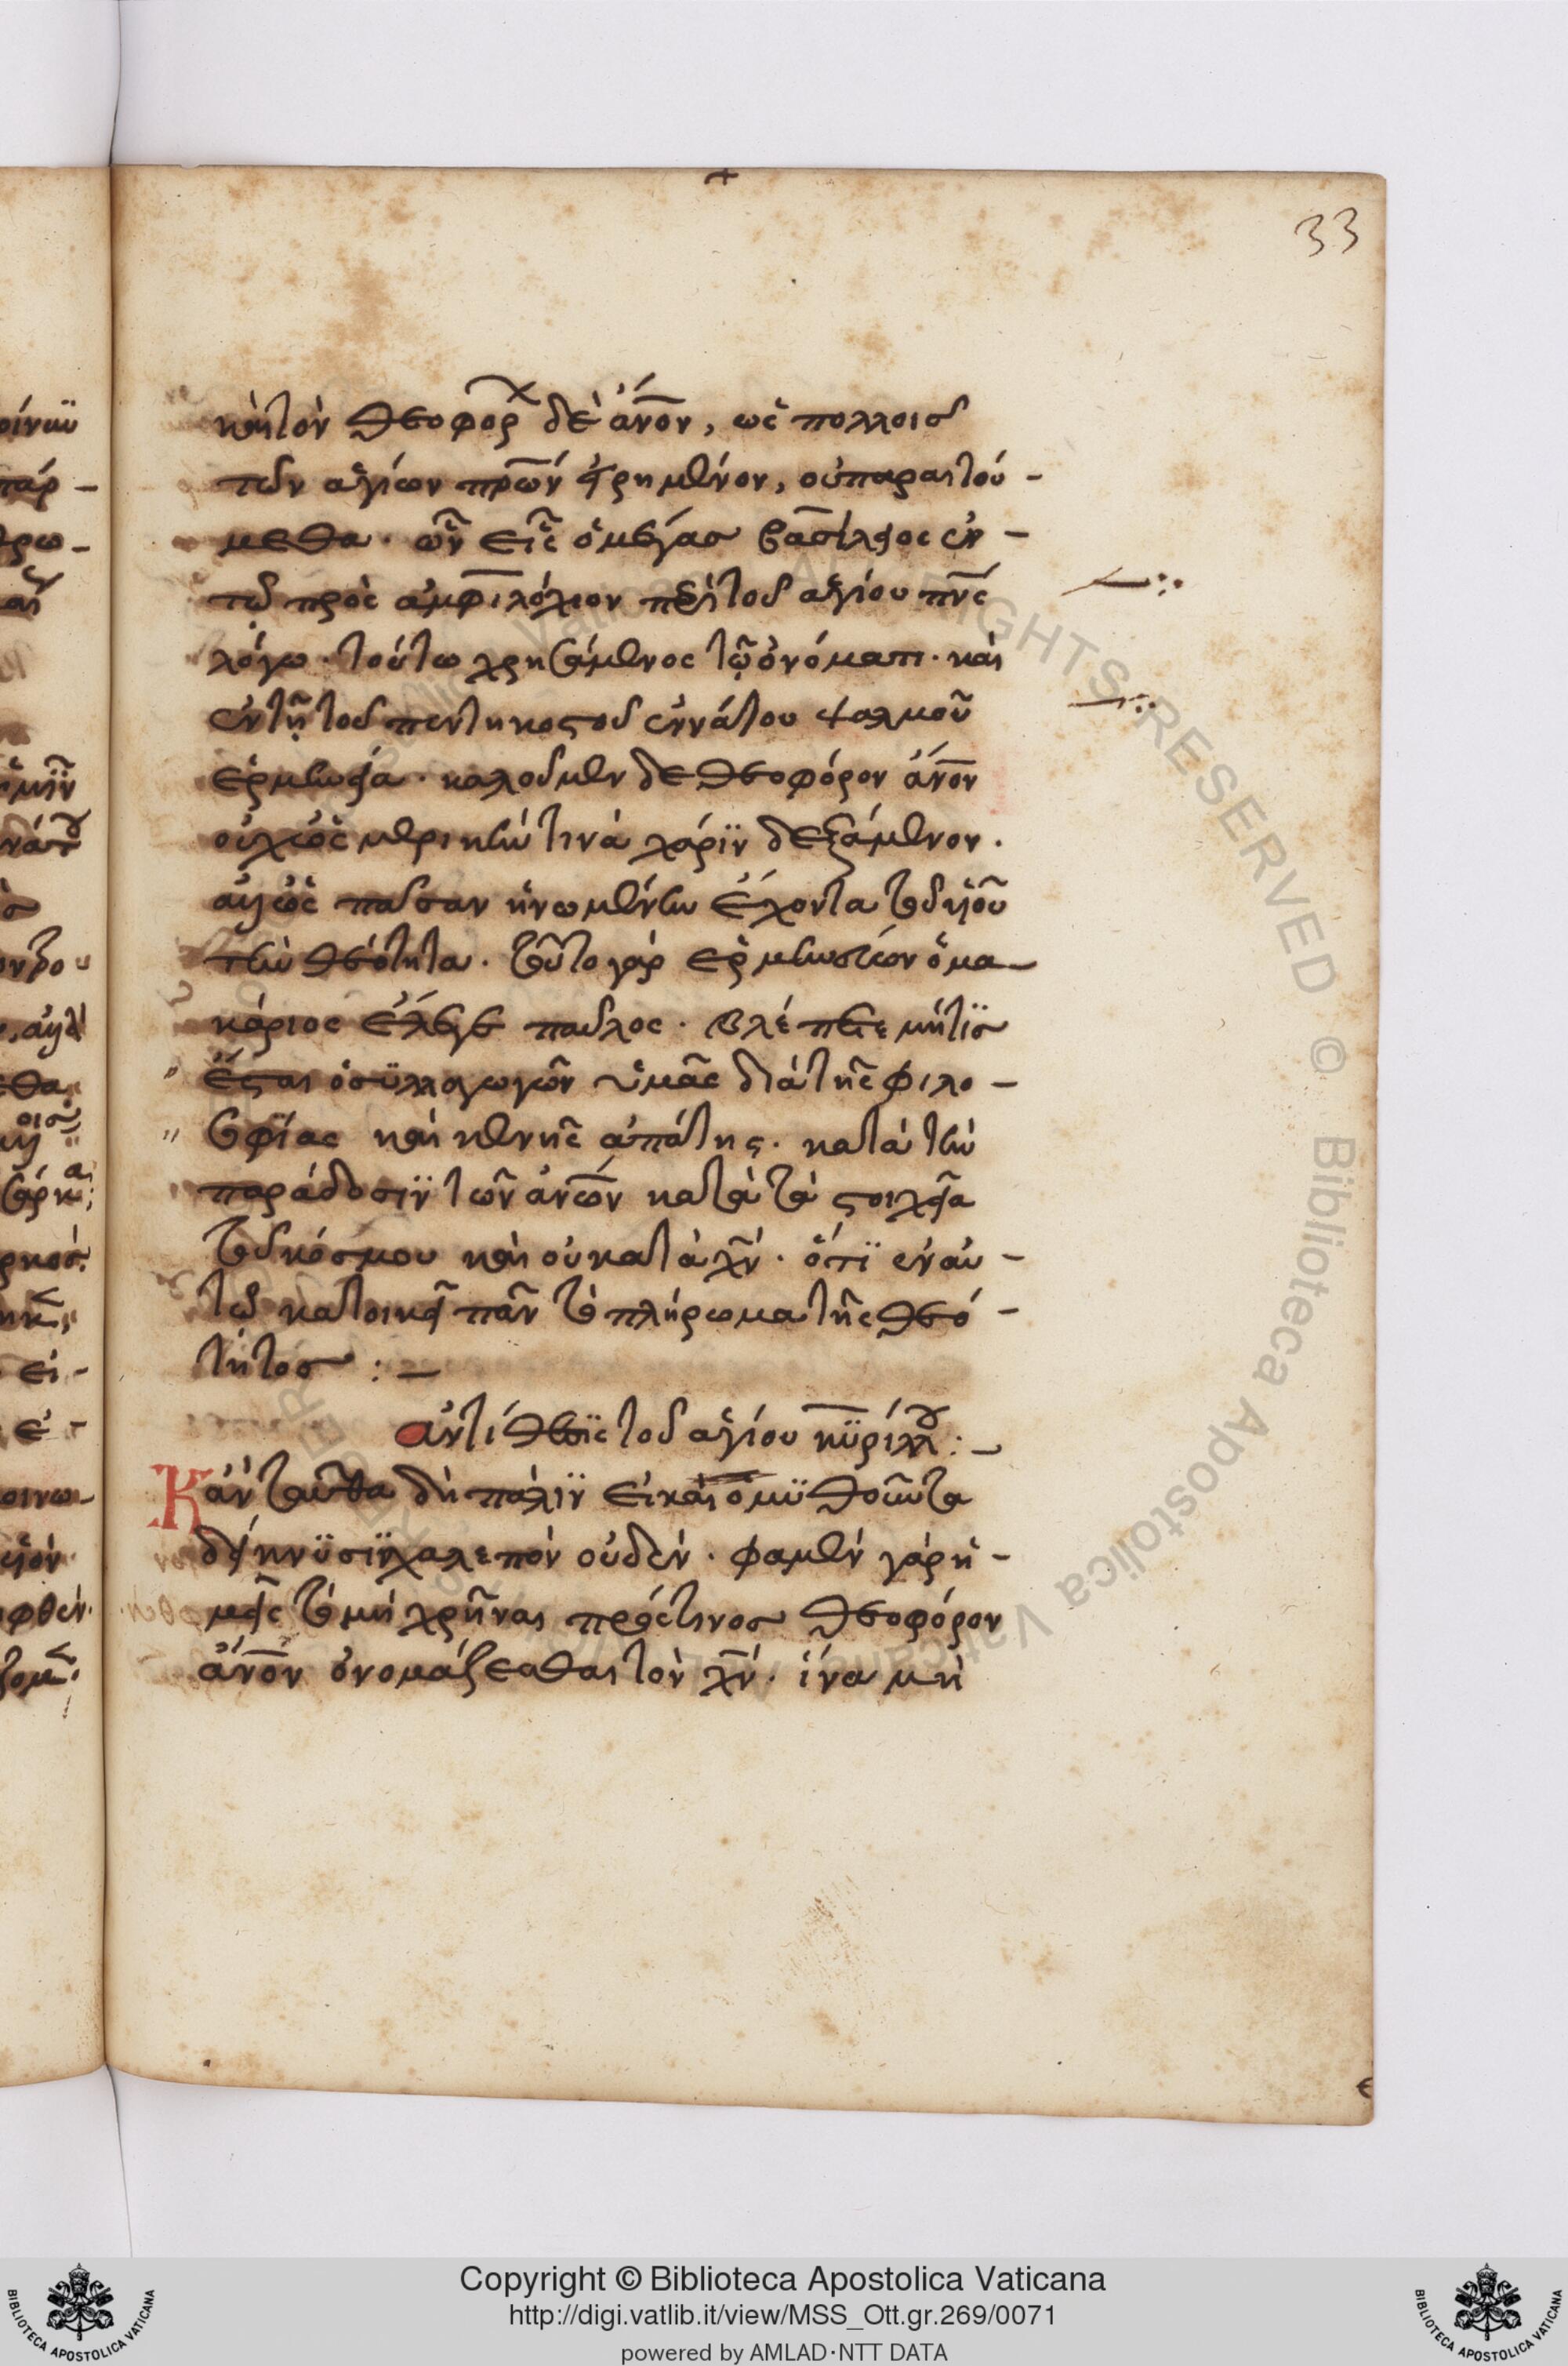 33
καὶ τὸν θεοφόρ δὲ ἄνον, ὡς πολλοῖς
τῶν ἁγίων πρῶν εἰρημένον, οὐ παραιτού-
μεθα. ὧν εἷς ὁ μέγας βασίλειος ἐν
τῷ πρὸς ἀμφιλόχιον περὶ τοῦ ἁγίου πνς
λόγω. τούτω χρησάμενος τῷ ὀνόματι. καὶ
ἐν τῇ τοῦ πεντηκοστοῦ ἐννάτου ψαλμοῦ
ἑρμηνεία. καλοῦμεν δὲ θεοφόρον ἄνον
οὐχ ὡς μερικήν τινὰ χάριν δεξάμενον.
ἀλλ' ὡς πᾶσαν ἡνωμένην ἔχοντα τοῦ υἱοῦ
τὴν θεότητα. τοῦτο γὰρ ἑρμηνεύων ὁ μα-
κάριος ἔλεγε παῦλος. βλέπετε μήτις
ἔσται ὁ συλλαγωγῶν ὑμᾶς διὰ τῆς φιλο-
σοφίας καὶ κενῆς ἀπάτης. κατὰ τὴν
παράδοσιν τῶν ἀνων κατὰ τὰ στοιχεῖα
τοῦ κόσμου καὶ οὐ κατὰ χν. ὅτι ἐν αὐ-
τῷ κατοικεῖ πᾶν τὸ πλήρωμα τῆς θεό-
τητος : —
ἀντίθεσις τοῦ ἁγίου κυρίλλου : —
Κἀνταῦθα δὴ πάλιν εἰκαιομυθοῦντα
δεικνύσιν χαλεπὸν οὐδέν. φαμὲν γὰρ ἡ-
μεῖς τὸ μὴ χρῆναι πρός τινος θεοφόρον
ἄνον ὀνομάζεσθαι τὸν χν. ἵνα μὴ
Copyright © Biblioteca Apostolica Vaticana
http://digi.vatlib.it/view/MSS_Ott.gr.269/0071
powered by AMLAD·NTT DATA